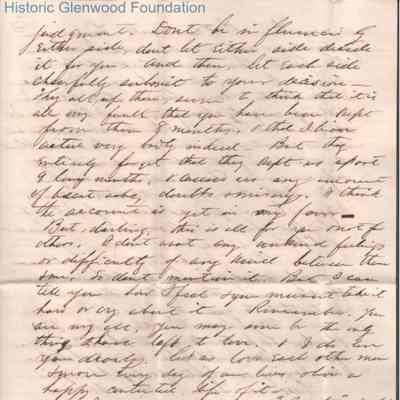 Historic Glenwood Foundation
judgment. Dont be influenced by
either side, dont let either side decide
it for you. And then, let each side
cheerfully submit to your decision—
They all of them seem to think that it is
all my fault that you have been kept
from them 8 months, & that I have
acted very badly indeed. But they
entirely forget that they kept us apart
9 long months, & caused us any amount
of heart ache, doubts & misery. I think
the account is yet in my favor—
But, darling, this is all for you & not for
others. I dont want any unkind feelings
or difficulty of any kind between them
& me. So dont mention it. But I can
tell you how I feel & you mustnt take it
hard or cry about it. Remember. You
are my all, you may some be the only
thing I have left to love. & I do love
you dearly. Let us love each other more
& more every day of our lives & live a
happy contented life of it.